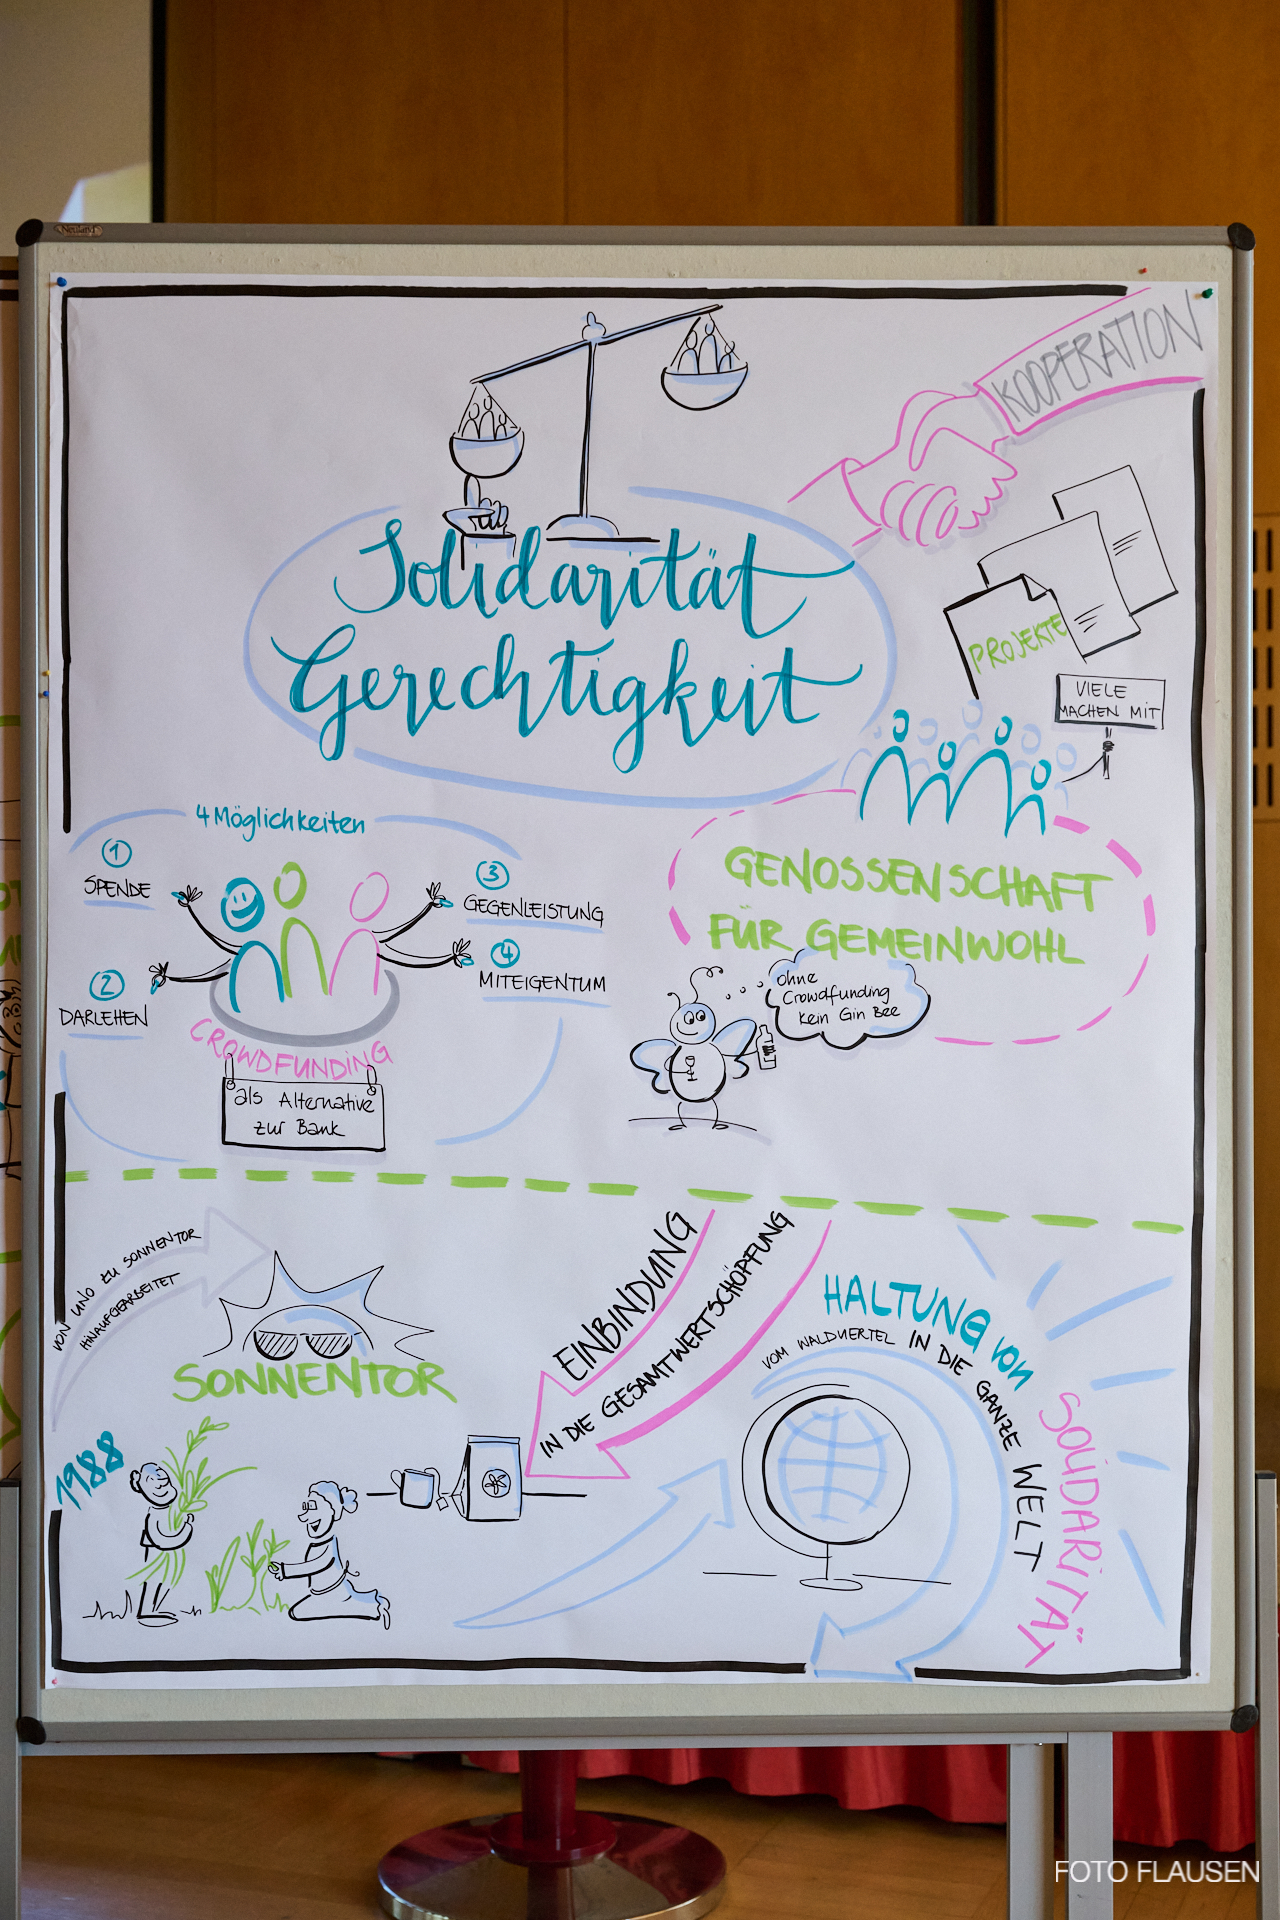 Neuland
KOOPERATION
Solidarität
Gerechtigkeit
PROJEKTE
VIELE
MACHEN MIT
4 Möglichkeiten
1
SPENDE
2
DARLEHEN
3
GEGENLEISTUNG
4
MITEIGENTUM
CROWDFUNDING
als Alternative
zur Bank
GENOSSENSCHAFT
FÜR GEMEINWOHL
ohne
Crowdfunding
kein Gin Bee
VON UND ZU SONNENTOR
HINAUFGEARBEITET
SONNENTOR
1988
EINBINDUNG
IN DIE GESAMTWERTSCHÖPFUNG
HALTUNG von
SOLIDARITÄT
VOM WALDVIERTEL IN DIE GANZE WELT
FOTO FLAUSEN